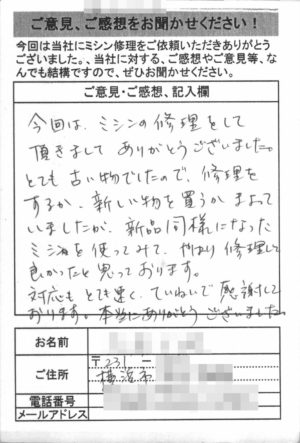 ご意見、ご感想をお聞かせください！
今回は当社にミシン修理をご依頼いただきありがとう
ございました。、当社に対する、ご感想やご意見等、な
んでも結構ですので、ぜひお聞かせください。
ご意見・ご感想、記入欄
今回は、ミシンの修理をして
頂きまして ありがとうございました。
とても古い物でしたので、修理を
するか、新しい物を買うか まよって
いましたが、新品同様になった
ミシンを使ってみて、やはり修理して
良かったと思っております。
対応も とても速く、ていねいで 感謝して
おります。本当にありがとうございました。
お名前
ご住所
〒231 －
横浜市
電話番号
メールアドレス